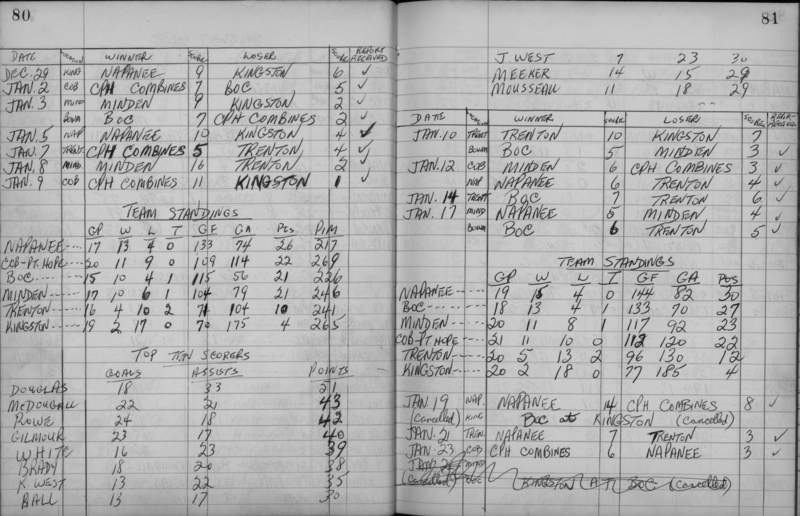 80
DATE WINNER SCORE LOSER SCORE REPORT RECEIVED
DEC. 29 KING NAPANEE 9 KINGSTON 6 ✓
JAN. 2 COB CPH COMBINES 7 BOC 5 ✓
JAN. 3 MIND MINDEN 9 KINGSTON 2 ✓
BOWM BOC 7 CPH COMBINES 2 ✓
JAN. 5 NAP NAPANEE 10 KINGSTON 4 ✓
JAN. 7 TRENT. CPH COMBINES 5 TRENTON 4 ✓
JAN. 8 MIND MINDEN 16 TRENTON 2 ✓
JAN. 9 COB CPH COMBINES 11 KINGSTON 1 ✓
TEAM STANDINGS
GP W L T GF GA PTS. PIM
NAPANEE 17 13 4 0 133 74 26 217
COB-PT. HOPE 20 11 9 0 109 114 22 269
BOC 15 10 4 1 115 56 21 226
MINDEN 17 10 6 1 104 79 21 246
TRENTON 16 4 10 2 71 104 10 241
KINGSTON 19 2 17 0 70 175 4 265
TOP TEN SCORERS
GOALS ASSISTS POINTS
DOUGLAS 18 33 51
McDOUGALL 22 21 43
ROWE 24 18 42
GILMOUR 23 17 40
WHITE 16 23 39
BRADY 18 20 38
K. WEST 13 22 35
BALL 13 17 30
81
J. WEST 7 23 30
MEEKER 14 15 29
MOUSSEAU 11 18 29
DATE WINNER SCORE LOSER SCORE
JAN. 10 TRENT TRENTON 10 KINGSTON 7
BOWM BOC 5 MINDEN 3 ✓
JAN. 12 COB MINDEN 6 CPH COMBINES 3 ✓
NAP NAPANEE 6 TRENTON 4 ✓
JAN. 14 TRENT BOC 7 TRENTON 6 ✓
JAN. 17 MIND NAPANEE 5 MINDEN 4 ✓
BOWM BOC 6 TRENTON 5 ✓
TEAM STANDINGS
GP W L T GF GA PTS
NAPANEE 19 15 4 0 144 82 30
BOC 18 13 4 1 133 70 27
MINDEN 20 11 8 1 117 92 23
COB-PT HOPE 21 11 10 0 112 120 22
TRENTON 20 5 13 2 96 130 12
KINGSTON 20 2 18 0 77 185 4
JAN 19 NAP. NAPANEE 14 CPH COMBINES 8 ✓
(Cancelled) KING BOC at KINGSTON (Cancelled)
JAN. 21 TREN. NAPANEE 7 TRENTON 3 ✓
JAN. 23 COB CPH COMBINES 6 NAPANEE 3 ✓
(Cancelled) KINGSTON AT BOC (Cancelled)